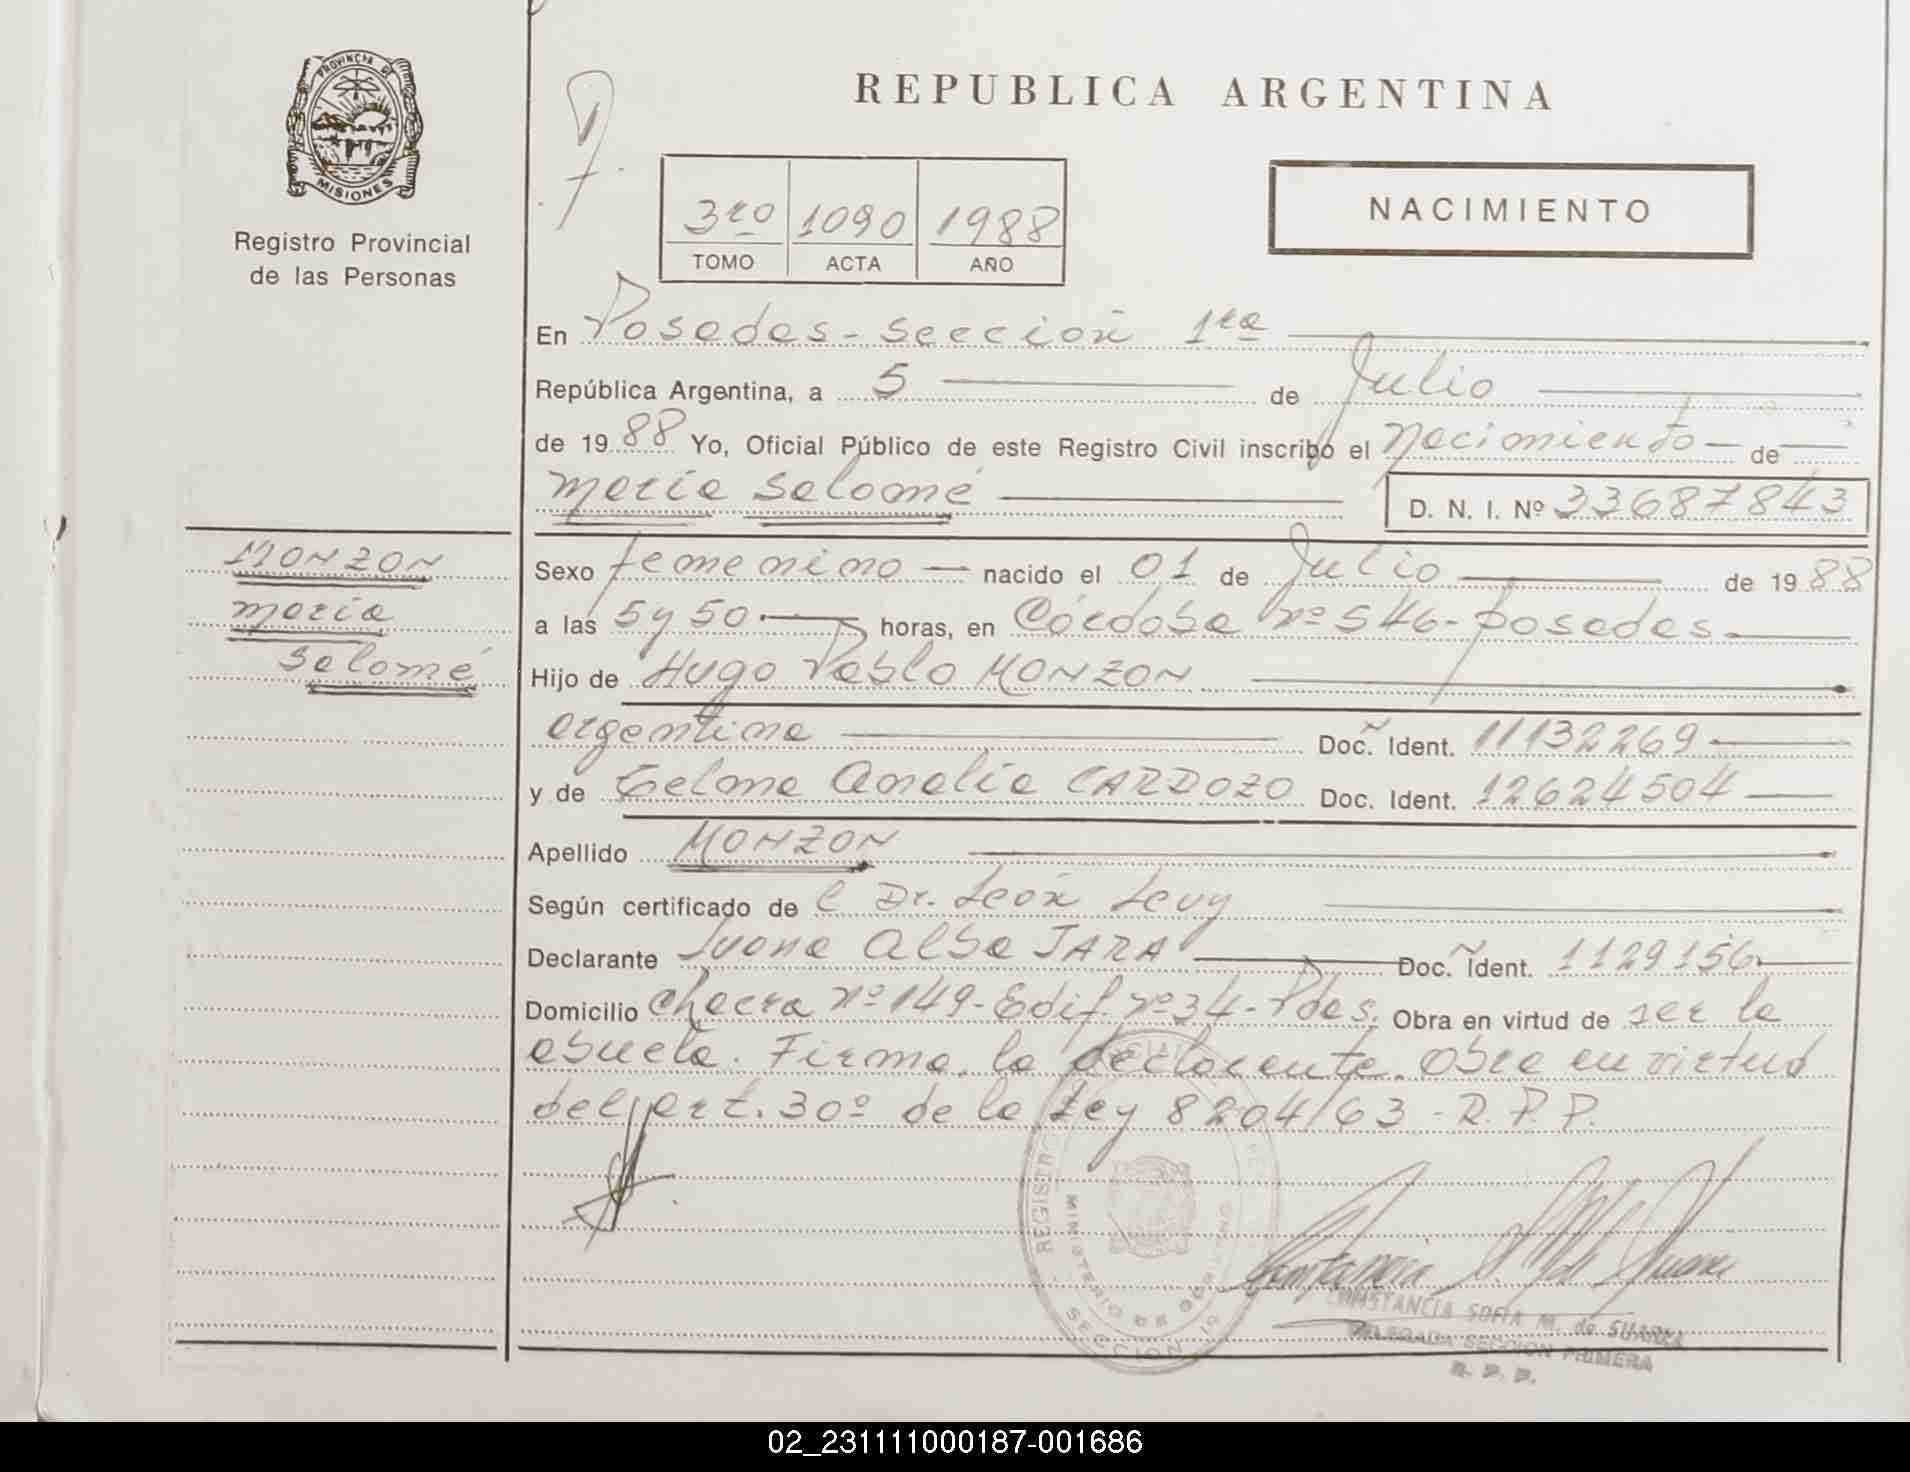 PROVINCIA DE
MISIONES
Registro Provincial
de las Personas
REPUBLICA ARGENTINA
3ro 1090 1988
TOMO ACTA AÑO
NACIMIENTO
En Posadas - Sección 1ra
República Argentina, a 5 de Julio
de 1988 Yo, Oficial Público de este Registro Civil inscribo el nacimiento de
maría Salomé D. N. I. Nº 33687843
MONZON
maría
Salomé
Sexo femenino nacido el 01 de Julio de 1988
a las 5 y 50 horas, en Córdoba nº 546 - posadas
Hijo de Hugo Pablo MONZON
argentina Doc. Ident. 11132269
y de Telma Analía CARDOZO Doc. Ident. 12624504
Apellido MONZON
Según certificado de l Dr. León Levy
Declarante Juana Alba JARA Doc. Ident. 1129156
Domicilio Chacra nº 149 - Edif. nº 34 - Pdas. Obra en virtud de ser la
abuela. Firma la declarante. Obra en virtud
del art. 30º de la Ley 8204/63 - R.P.P.
REGISTRO
MINISTERIO DE GOBIERNO
SECCION 1ª
CONSTANCIA SOFIA M. de SUAREZ
DELEGADA SECCION PRIMERA
R. P. P.
02_231111000187-001686